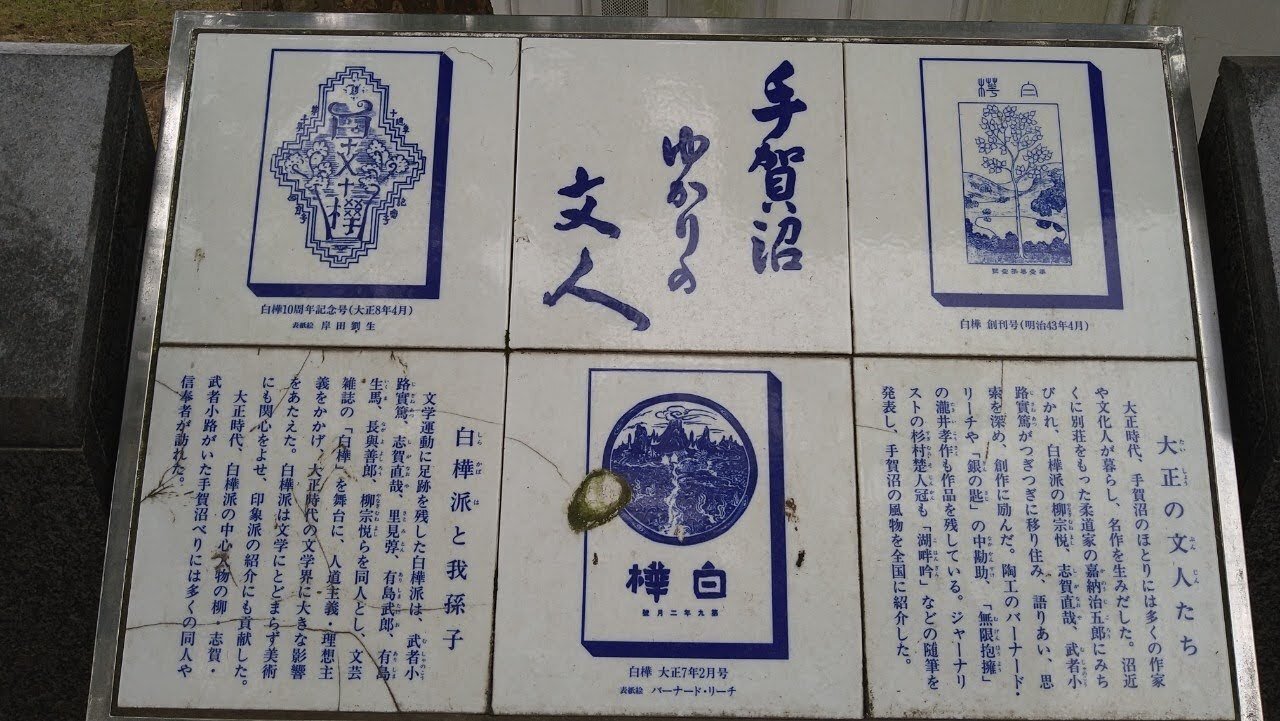 手賀沼
ゆかりの
文人
白樺
白樺 創刊号(明治43年4月)
白樺10周年記念号(大正8年4月)
表紙絵 岸田劉生
大正の文人たち
大正時代、手賀沼のほとりには多くの作家
や文化人が暮らし、名作を生みだした。沼近
くに別荘をもった柔道家の嘉納治五郎にみち
びかれ、白樺派の柳宗悦、志賀直哉、武者小
路實篤がつぎつぎに移り住み、語りあい、思
索を深め、創作に励んだ。陶工のバーナード・
リーチや「銀の匙」の中勘助、「無限抱擁」
の瀧井孝作も作品を残している。ジャーナリ
ストの杉村楚人冠も「湖畔吟」などの随筆を
発表し、手賀沼の風物を全国に紹介した。
白樺
第九年二月號
白樺 大正7年2月号
表紙絵 バーナード・リーチ
白樺派と我孫子
文学運動に足跡を残した白樺派は、武者小
路實篤、志賀直哉、里見弴、有島武郎、有島
生馬、長與善郎、柳宗悦らを同人とし、文芸
雑誌の「白樺」を舞台に、人道主義・理想主
義をかかげ、大正時代の文学界に大きな影響
をあたえた。白樺派は文学にとどまらず美術
にも関心をよせ、印象派の紹介にも貢献した。
大正時代、白樺派の中心人物の柳・志賀・
武者小路がいた手賀沼べりには多くの同人や
信奉者が訪れた。